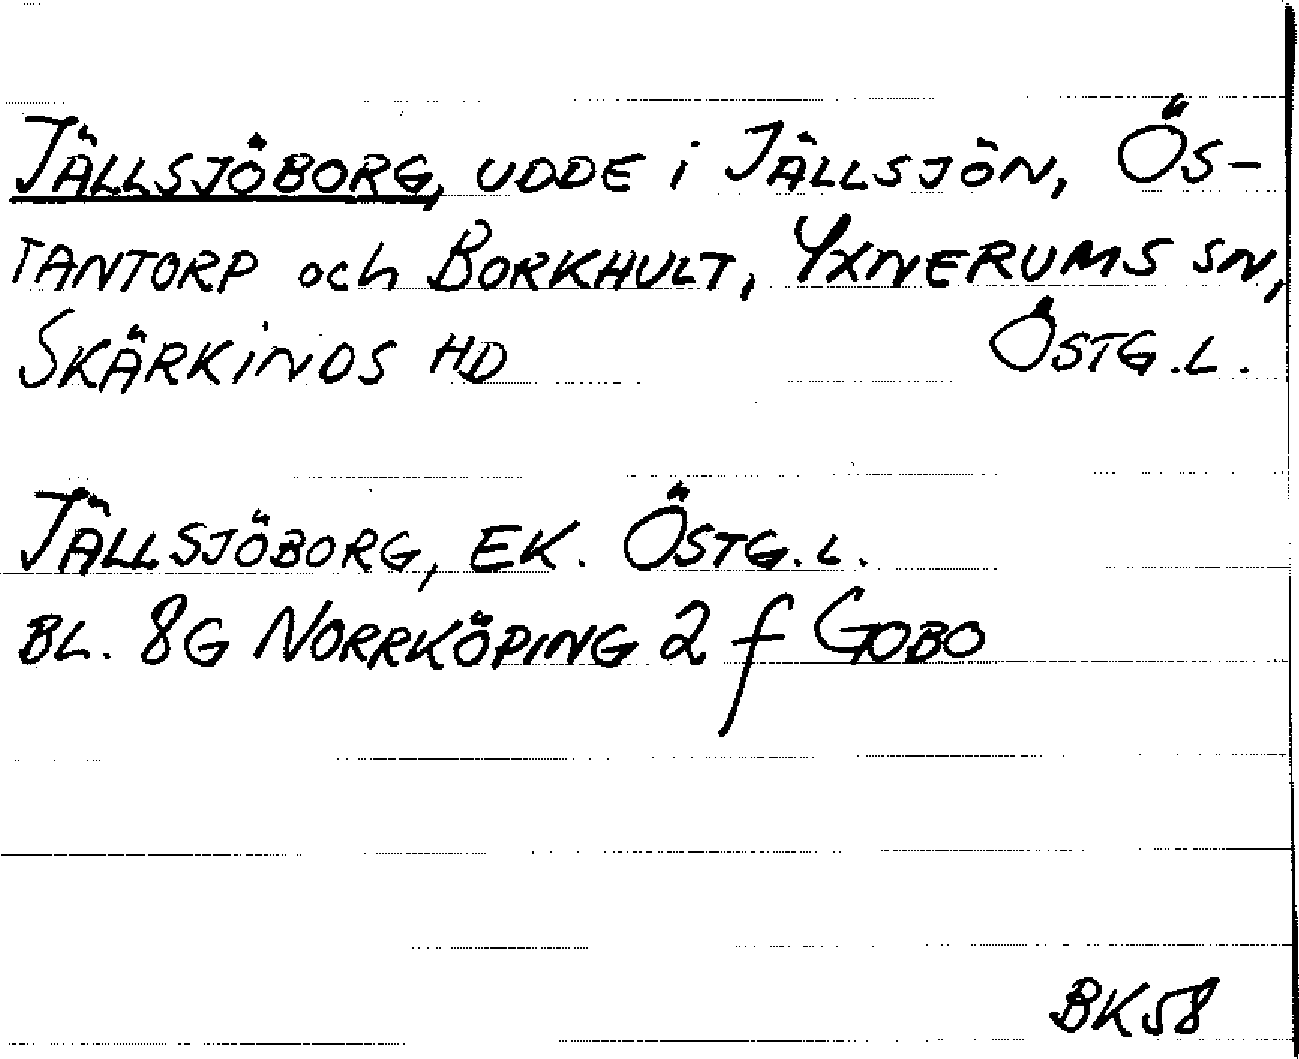 JÄLLSJÖBORG, UDDE i JÄLLSJÖN, ÖS-
TANTORP och BORKHULT, YXNERUMS SN,
SKÄRKINDS HD ÖSTG.L.
JÄLLSJÖBORG, EK. ÖSTG.L.
BL. 8G NORRKÖPING 2 f GOBO
BK58